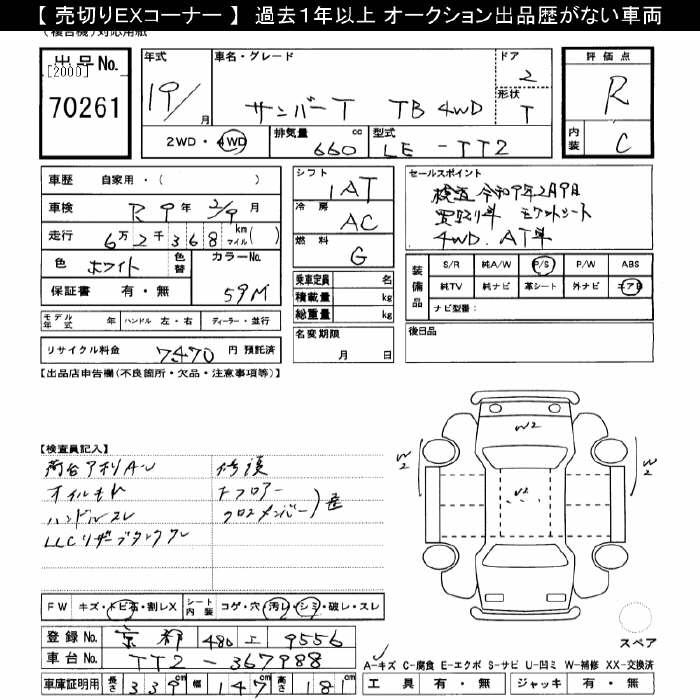 【 売切りEXコーナー 】 過去1年以上 オークション出品歴がない車両
(複合機)対応用紙
出品No.
[2000]
70261
年式
19/
月
車名・グレード
サンバーT TB 4WD
ドア
2
形状
T
評価点
R
内装
C
2WD・4WD
排気量
660
cc
型式
LE-TT2
車歴 自家用・( )
車検 R9年 2/9月
走行 6万2千368 km マイル( )
色 ホワイト
色替
カラーNo.
59M
保証書 有・無
モデル年式 年
ハンドル 左・右
ディーラー・並行
リサイクル料金 7470 円 預託済
シフト
1AT
冷房
AC
燃料
G
乗車定員 名
積載量 kg
総重量 kg
名変期限
月 日
セールスポイント
検査 令和9年2月9日
買取り車
4WD. AT車
装備品
S/R 純A/W P/S P/W ABS
純TV 純ナビ 革シート 外ナビ エアB
ナビ型番:
後日品
【出品店申告欄(不良箇所・欠品・注意事項等)】
【検査員記入】
オイルモレ
ハンドルスレ
修復
Fフロアー
クロスメンバー
W2
W2
W2
W2
FW キズ・トビ石・割レX
シート内装 コゲ・穴・汚レ・シミ・破レ・スレ
登録No. 京都 480 エ 9556
車台No. TT2-367988
車庫証明用 長さ 339cm 幅 147cm 高さ 181cm
スペア
A-キズ C-腐食 E-エクボ S-サビ U-凹ミ W-補修 XX-交換済
工具 有・無 ジャッキ 有・無